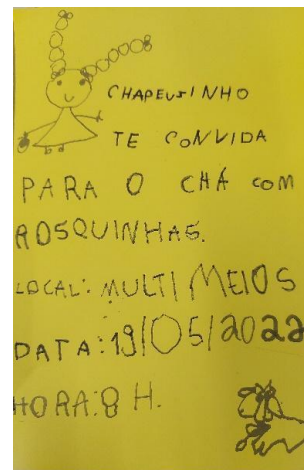 CHAPEUZINHO
TE CONVIDA
PARA O CHÁ COM
ROSQUINHAS.
LOCAL: MULTIMEIOS
DATA: 19/05/2022
HORA: 8 H.